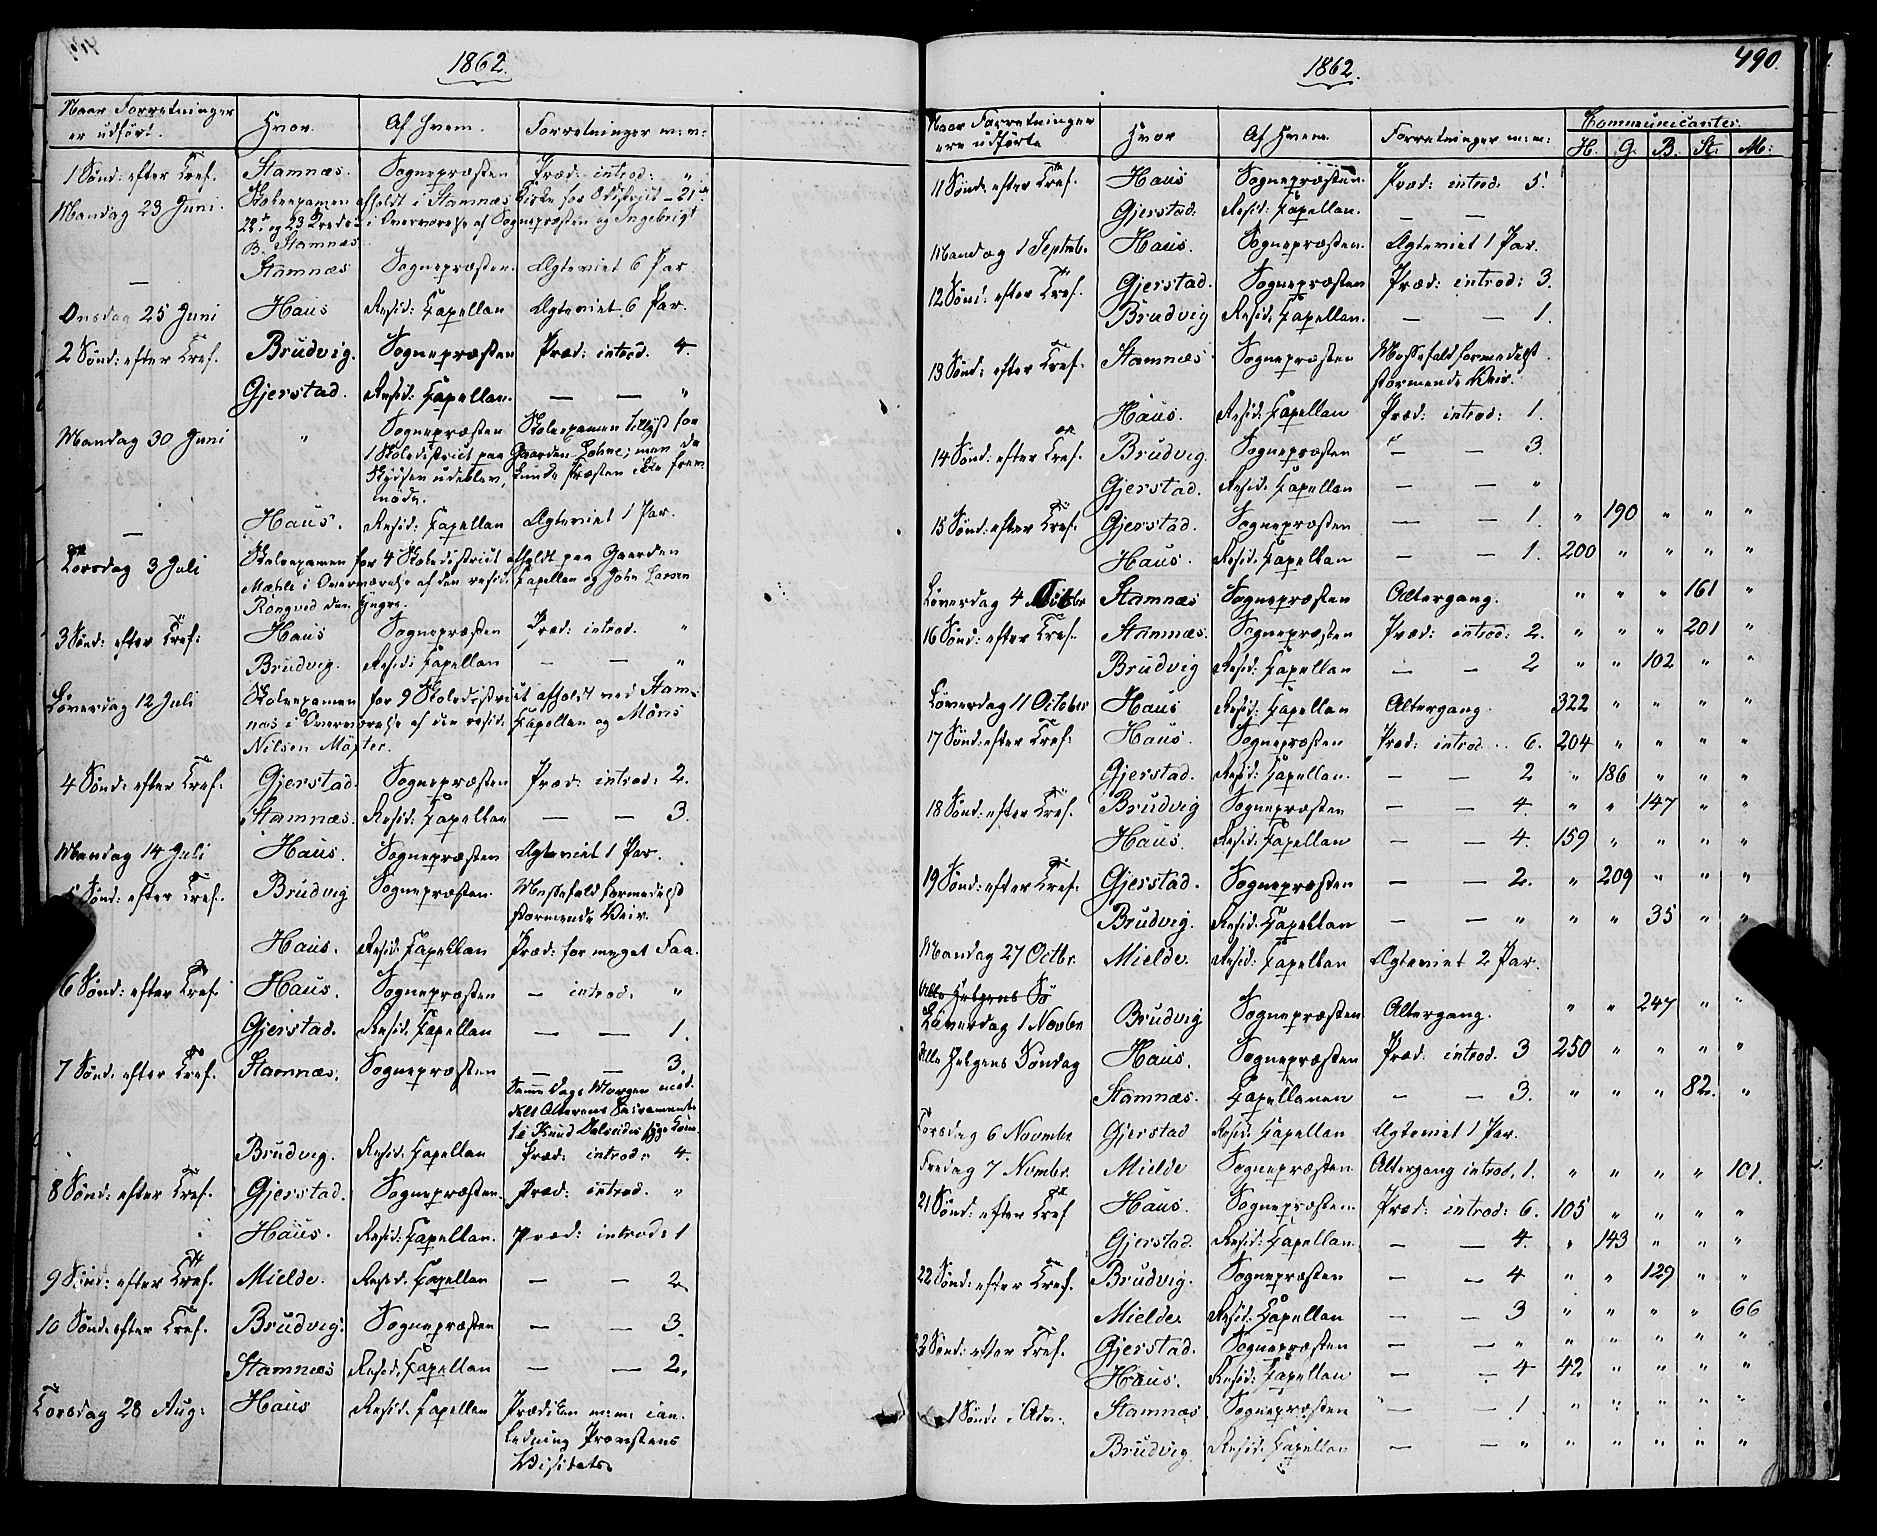 1862.
Naar Forretninger er udført. Hvor. Af Hvem. Forretninger m: m:
1 Sønd: efter Tref. Stamnæs. Sognepræsten Præd: introd: "
Mandag 23 Juni. Skoleexamen afholdt i Stamnæs Kirke for District - 21de
22de og 23 Kreds - i Overværelse af Sognepræsten og Ingebrigt
B. Stamnæs
— Stamnæs Sognepræsten. Ægteviet 6 Par.
Onsdag 25 Juni Haus Resid: Capellan Ægteviet. 6 Par.
2 Sønd: efter Tref. Brudvig. Sognepræsten Præd: introd. 4.
Gjerstad. Resid: Capellan. — — "
Mandag 30 Juni " Sognepræsten Skoleexamen tillyst for
1 Skoledistrict paa Gaarden Lohne; men da
Skydsen udeblev, kunde Præsten ikke frem-
møde.
— Haus. Resid: Capellan Ægteviet 1 Par.
Torsdag 3 Juli Skoleexamen for 4 Skoledistrict afholdt paa Gaarden
Mæhle i Overværelse af den resid: Capellan og John Larsen
Röngved den Yngre.
3 Sønd: efter Tref: Haus Sognepræsten Præd: introd. "
Brudvig. Resid: Capellan — — "
Løverdag 12 Juli Skoleexamen for 9 Skoledistrict afholdt ved Stam-
næs i Overværelse af den resid. Capellan og Möns
Nilsen Mÿster.
4 Sønd: efter Tref. Gjerstad. Sognepræsten Præd: introd: 2.
Stamnæs. Resid: Capellan — — 3.
Mandag 14 Juli Haus. Sognepræsten Ægteviet 1 Par.
5 Sønd: efter Tref. Brudvig Sognepræsten. Messefald formedelst
stormende Veir.
Haus. Resid: Capellan Præd: for meget Faa.
6 Sønd: efter Tref. Haus. Sognepræsten — introd: "
Gjerstad. Resid: Capellan — — 1.
7 Sønd: efter Tref. Stamnæs. Sognepræsten — — 3.
Samme Dags Morgen med-
delt Alterens Sacramente
til Knud Dalseides syge Kone.
Brudvig. Resid: Capellan Præd: introd: 4.
8 Sønd: efter Tref. Gjerstad. Sognepræsten. Præd: introd. "
Haus. Resid: Capellan. Præd: introd: 1
9 Sønd: efter Tref. Mielde. Resid: Capellan — — 2.
10 Sønd: efter Tref. Brudvig. Sognepræsten — — 3.
Stamnæs Resid: Capellan — — 2.
Torsdag 28 Aug: Haus Resid. Capellan Prædiken m: m: i an-
ledning Provstens
Visitats.
1862. 490.
Naar Forretninger ere udførte Hvor Af Hvem. Forretninger m: m: Communicanter.
H. G. B. St: M:
11 Sønd: efter Tref. Haus Sognepræsten. Præd: introd: 5.
Gjerstad: Resid: Capellan. — —
Mandag 1 Septmbr. Haus. Sognepræsten. Ægteviet 1 Par.
12 Sønd: efter Tref. Gjerstad. Sognepræsten Præd: introd: 3.
Brudvig Resid: Capellan. — — 1.
13 Sønd: efter Tref. Stamnæs. Sognepræsten Messefald formedelst
stormende Veir.
Haus. Resid: Capellan Præd: introd: 1.
14 Sønd: efter Tref. Brudvig. Sognepræsten — — 3.
Gjerstad. Resid: Capellan — — "
15 Sønd: efter Tref. Gjerstad. Sognepræsten — — 1. " 190 " " "
Haus. Resid: Capellan — — 1. 200 " " " "
Løverdag 4 Octbr Stamnæs Sognepræsten Altergang. " " " 161 "
16 Sønd: efter Tref. Stamnæs. Sognepræsten Præd: introd: 2. " " " 201 "
Brudvig Resid: Capellan — — 2 " " 102 " "
Løverdag 11 October Haus Resid: Capellan Altergang. 322 " " " "
17 Sønd: efter Tref: Haus. Sognepræsten Præd: introd.. 6. 204 " " " "
Gjerstad. Resid: Capellan. — — 2 " 186 " " "
18 Sønd: efter Tref. Brudvig Sognepræsten — — 4. " " 147 " "
Haus. Resid: Capellan — — 4. 159 " " " "
19 Sønd: efter Tref. Gjerstad. Sognepræsten — — 2. " 209 " " "
Brudvig. Resid: Capellan — — " " " 35 " "
Mandag 27 Octbr. Mielde. Resid: Capellan Ægteviet 2 Par.
Alle Helgens Sö
Løverdag 1 Novbr Brudvig Sognepræsten Altergang. " " 247 " "
Alle Helgens Søndag Haus. Sognepræsten Præd: introd. 3 250 " " " "
Stamnæs. Capellanen — — 3. " " " 82. "
Torsdag 6 Novmbr Gjerstad Resid: Capellan Ægteviet 1 Par.
Fredag 7 Novmbr. Mielde Sognepræsten Altergang introd. 1. " " " " 101.
21 Sønd: efter Tref Haus. Sognepræsten. Præd: introd: 6. 105 " " " "
Gjerstad. Resid: Capellan. — — 4. " 143 " " "
22 Sønd: efter Tref. Brudvig. Sognepræsten — — 4 " " 129 " "
Mielde. Resid: Capellan — — 3 " " " " 66
23 Sønd: efter Tref. Gjerstad. Sognepræsten — — " " " " " "
Haus. Resid: Capellan — — 4 42 " " " "
1 Sønd: i Adv:. Stamnæs. Sognepræsten " — 1. " " " " "
Brudvig Resid: Capellan — — " " " " " "